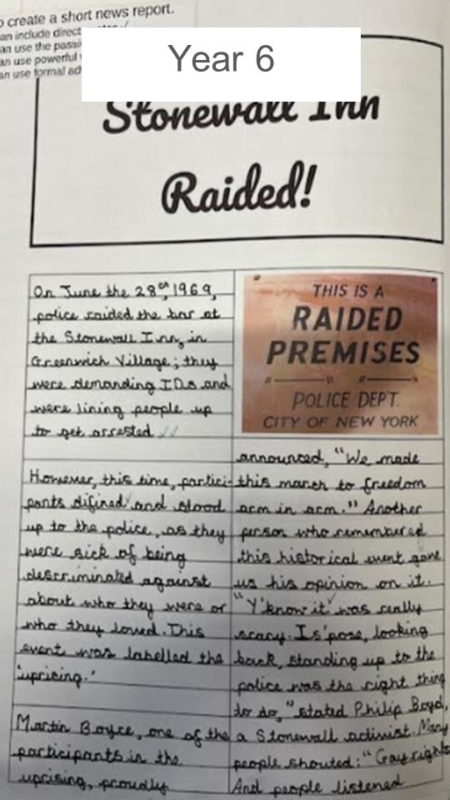 o create a short news report.
an include direct
an use the passi
an use powerful
an use formal ad
Year 6
Stonewall Inn
Raided!
On June the 28th, 1969,
police raided the bar at
the Stonewall Inn, in
Greenwich Village; they
were demanding IDs and
were lining people up
to get arrested.
However, this time, partici-
pants difined and stood
up to the police, as they
were sick of being
discriminated against
about who they were or
who they loved. This
event was labelled the
'uprising.'
Martin Boyce, one of the
participants in the
uprising, proudly
THIS IS A
RAIDED
PREMISES
POLICE DEPT.
CITY OF NEW YORK
announced, "We made
this march to freedom
arm in arm." Another
person who remembered
this historical event gave
us his opinion on it.
"Y'know it was really
scary. I s'pose, looking
back, standing up to the
police was the right thing
to do," stated Philip Boyd,
a Stonewall activist. Many
people shouted: "Gay rights
And people listened